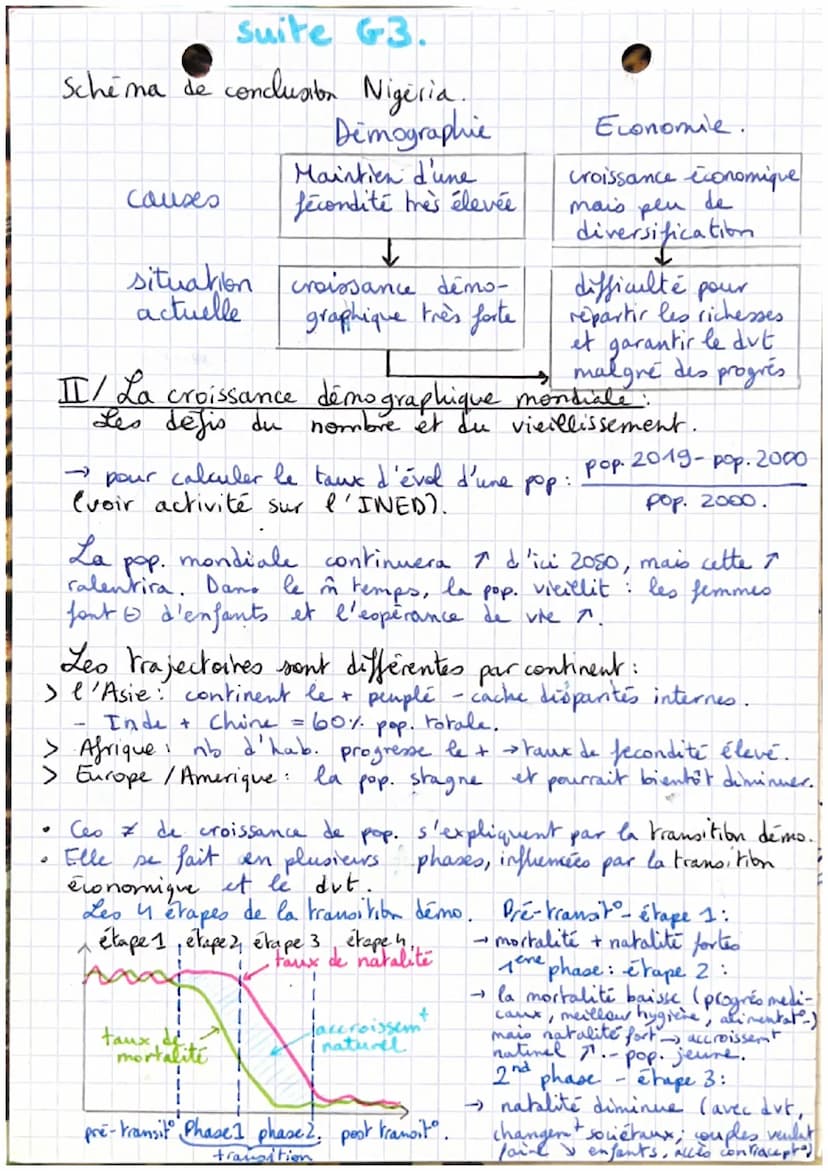 suite G3.
Schéma de conclusion Nigéria.
Démographie
Economie.
causes
Maintien d'une
fécondité très élevée
croissance économique
mais peu de
diversification
situation
actuelle
croissance démo-
graphique très forte
difficulté pour
répartir les richesses
et garantir le dvt
malgré des progrés
II/ La croissance démographique mondiale :
Les défis du nombre et du vieillissement.
→ pour calculer le taux d'évol d'une pop : pop. 2019 - pop. 2000
(voir activité sur l'INED). pop. 2000.
La pop. mondiale continuera ↗ d'ici 2050, mais cette ↗
ralentira. Dans le m̂ temps, la pop. vieillit : les femmes
font ⊖ d'enfants et l'espérance de vie ↗.
Les trajectoires sont différentes par continent :
> l'Asie : continent le + peuplé - cache disparités internes.
- Inde + Chine = 60% pop. totale.
> Afrique : nb d'hab. progresse le + → taux de fécondité élevé.
> Europe / Amerique : la pop. stagne et pourrait bientôt diminuer.
• Ces ≠ de croissance de pop. s'expliquent par la transition démo.
• Elle se fait en plusieurs phases, influencées par la transition
économique et le dvt.
Les 4 étapes de la transition démo.
étape 1 étape 2 étape 3 étape 4
taux de natalité
taux de
mortalité
accroissemt
naturel
pré-transit° Phase 1 phase 2. post transit°.
transition
Pré-transit° - étape 1 :
→ mortalité + natalité fortes
1ère phase : étape 2 :
→ la mortalité baisse (progrés medi-
caux, meilleur hygiène, alimentat°)
mais natalité fort → accroissemt
naturel ↗. - pop. jeune.
2nd phase - étape 3 :
→ natalité diminue (avec dvt,
changemt sociétaux ; couples veulent
faire ↘ enfants, accès contracept°)